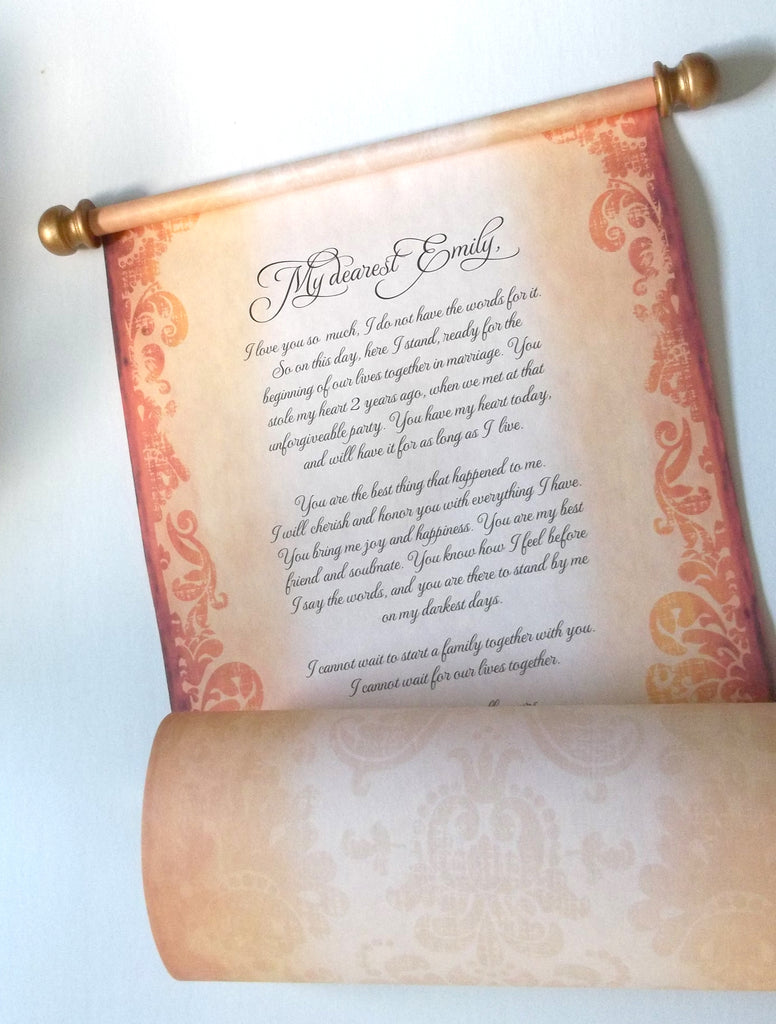 My dearest Emily,
I love you so much, I do not have the words for it.
So on this day, here I stand, ready for the
beginning of our lives together in marriage. You
stole my heart 2 years ago, when we met at that
unforgiveable party. You have my heart today,
and will have it for as long as I live.
You are the best thing that happened to me.
I will cherish and honor you with everything I have.
You bring me joy and happiness. You are my best
friend and soulmate. You know how I feel before
I say the words, and you are there to stand by me
on my darkest days.
I cannot wait to start a family together with you.
I cannot wait for our lives together.